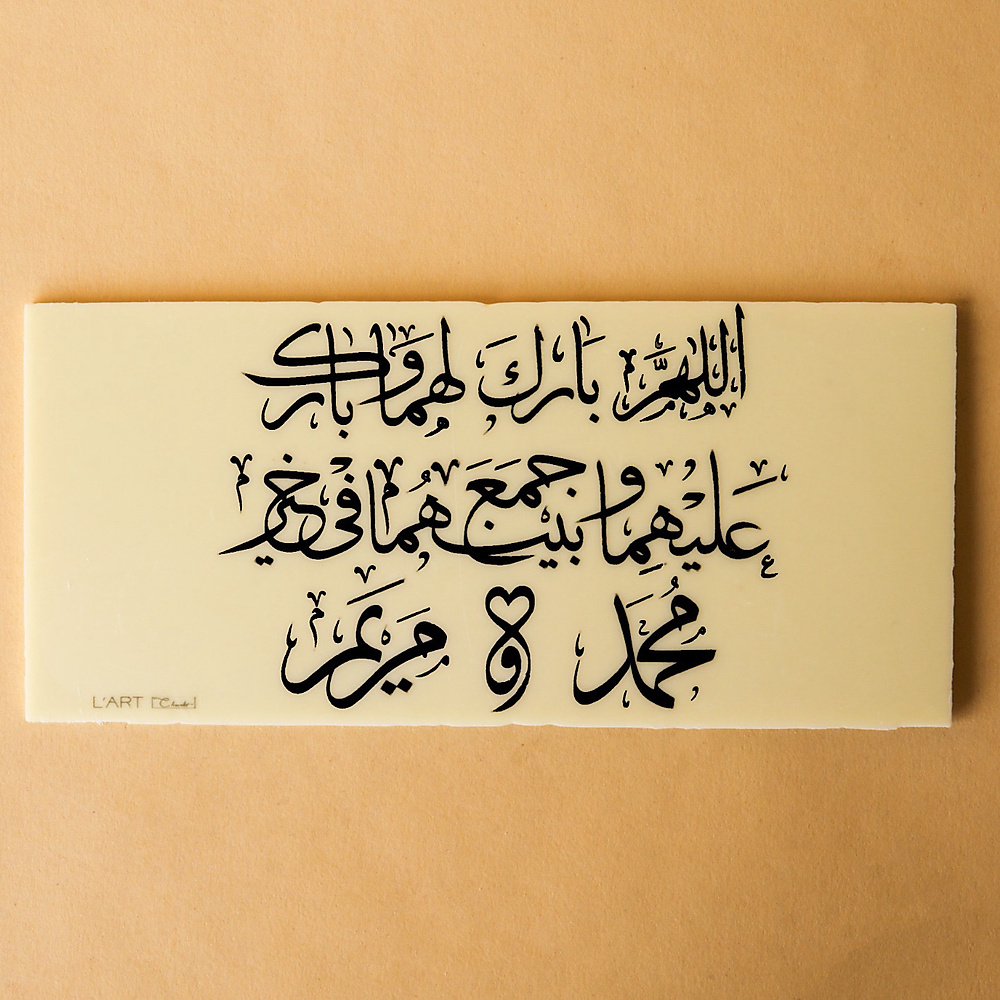 اللهم بارك لهما وبارك
عليهما وجمع بينهما في خير
محمد و مريم
L'ART [C